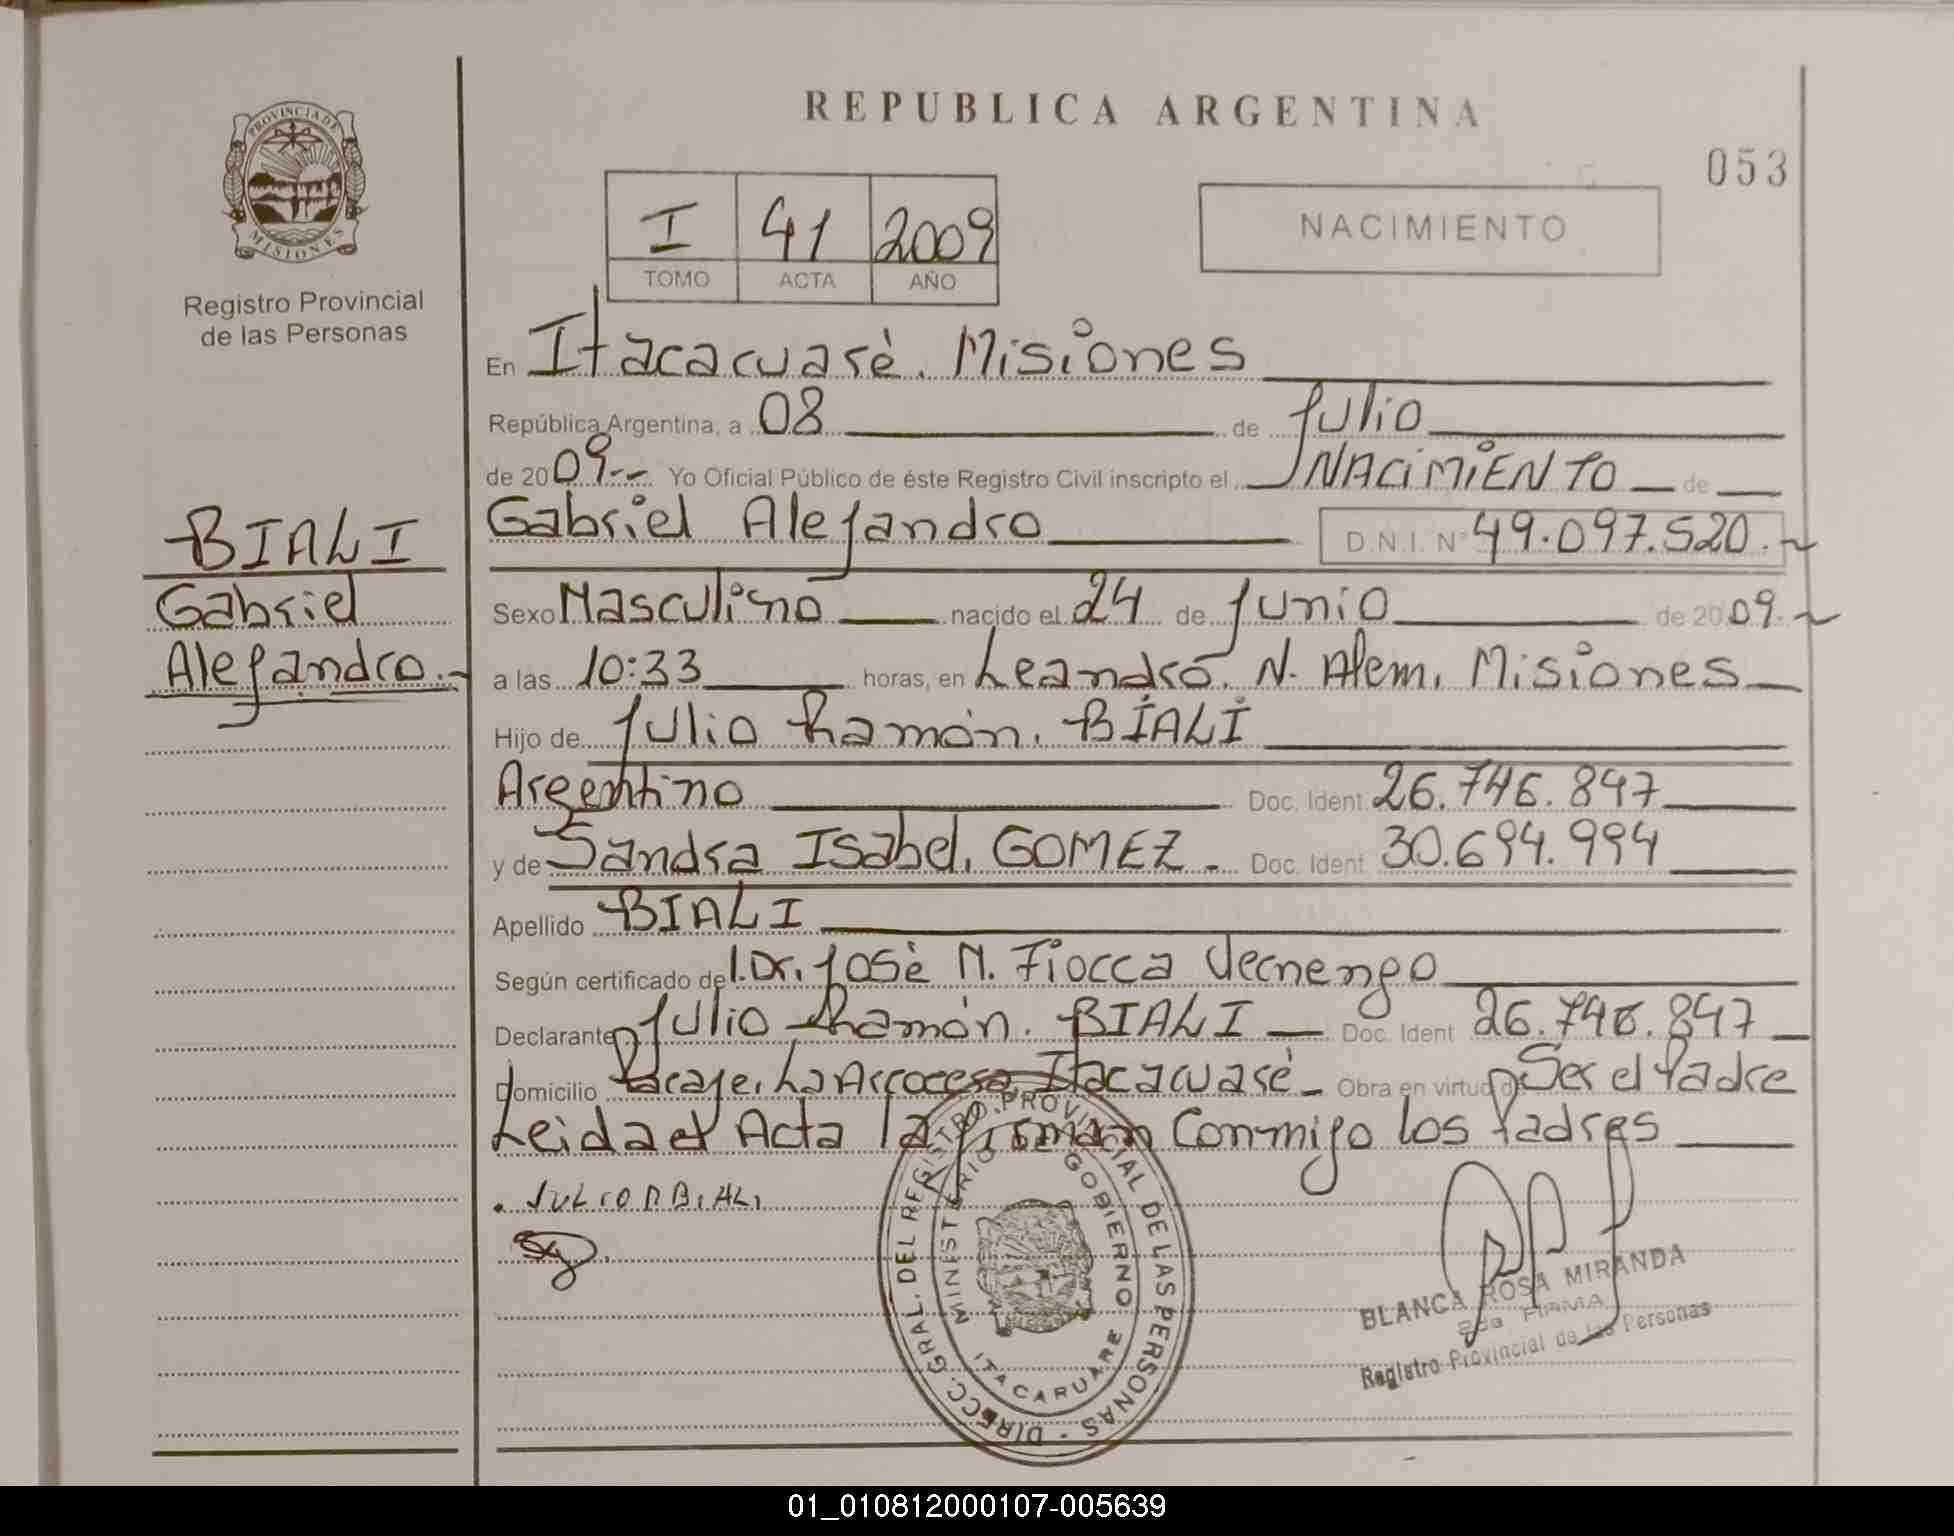 REPUBLICA ARGENTINA
053
PROVINCIA DE
MISIONES
Registro Provincial
de las Personas
I 41 2009
TOMO ACTA AÑO
NACIMIENTO
En Itacacuaré. Misiones
República Argentina, a 08 de Julio
de 2009.-- Yo Oficial Público de éste Registro Civil inscripto el NACIMIENTO de
Gabriel Alejandro D.N.I. Nº 49.097.520.
BIALI
Gabriel
Alejandro.-
Sexo Masculino nacido el 24 de Junio de 2009.
a las 10:33 horas, en Leandro. N. Alem. Misiones
Hijo de Julio Ramón. BIALI
Argentino Doc. Ident 26.746.847
y de Sandra Isabel. GOMEZ. Doc. Ident 30.694.994
Apellido BIALI
Según certificado de l. Dr. José M. Fiocca
Declarante Julio Ramón. BIALI Doc. Ident 26.746.847
Domicilio Itacacuaré Obra en virtud de Ser el Padre
Leida el Acta la firman Conmigo los Padres
JULIO R BIALI
DIRECC. GRAL. DEL REGISTRO PROVINCIAL DE LAS PERSONAS
MINISTERIO GOBIERNO
ITACARUARE
BLANCA ROSA MIRANDA
2da FIRMA
Registro Provincial de las Personas
01_010812000107-005639